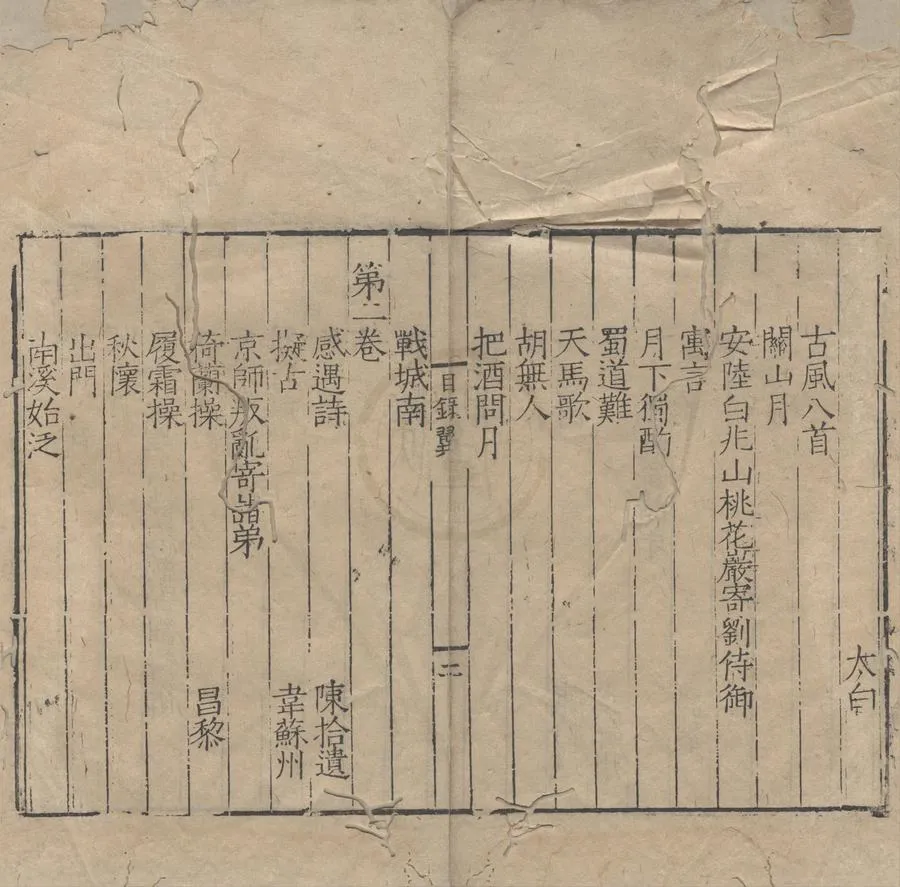 太白
古風八首
關山月
安陸白兆山桃花巖寄劉侍御
寓言
月下獨酌
蜀道難
天馬歌
胡無人
把酒問月
目錄翼
二
戰城南
第二卷
感遇詩 陳拾遺
擬古 韋蘇州
京師叛亂寄諸弟
倚蘭操 昌黎
履霜操
秋懷
出門
南溪始泛